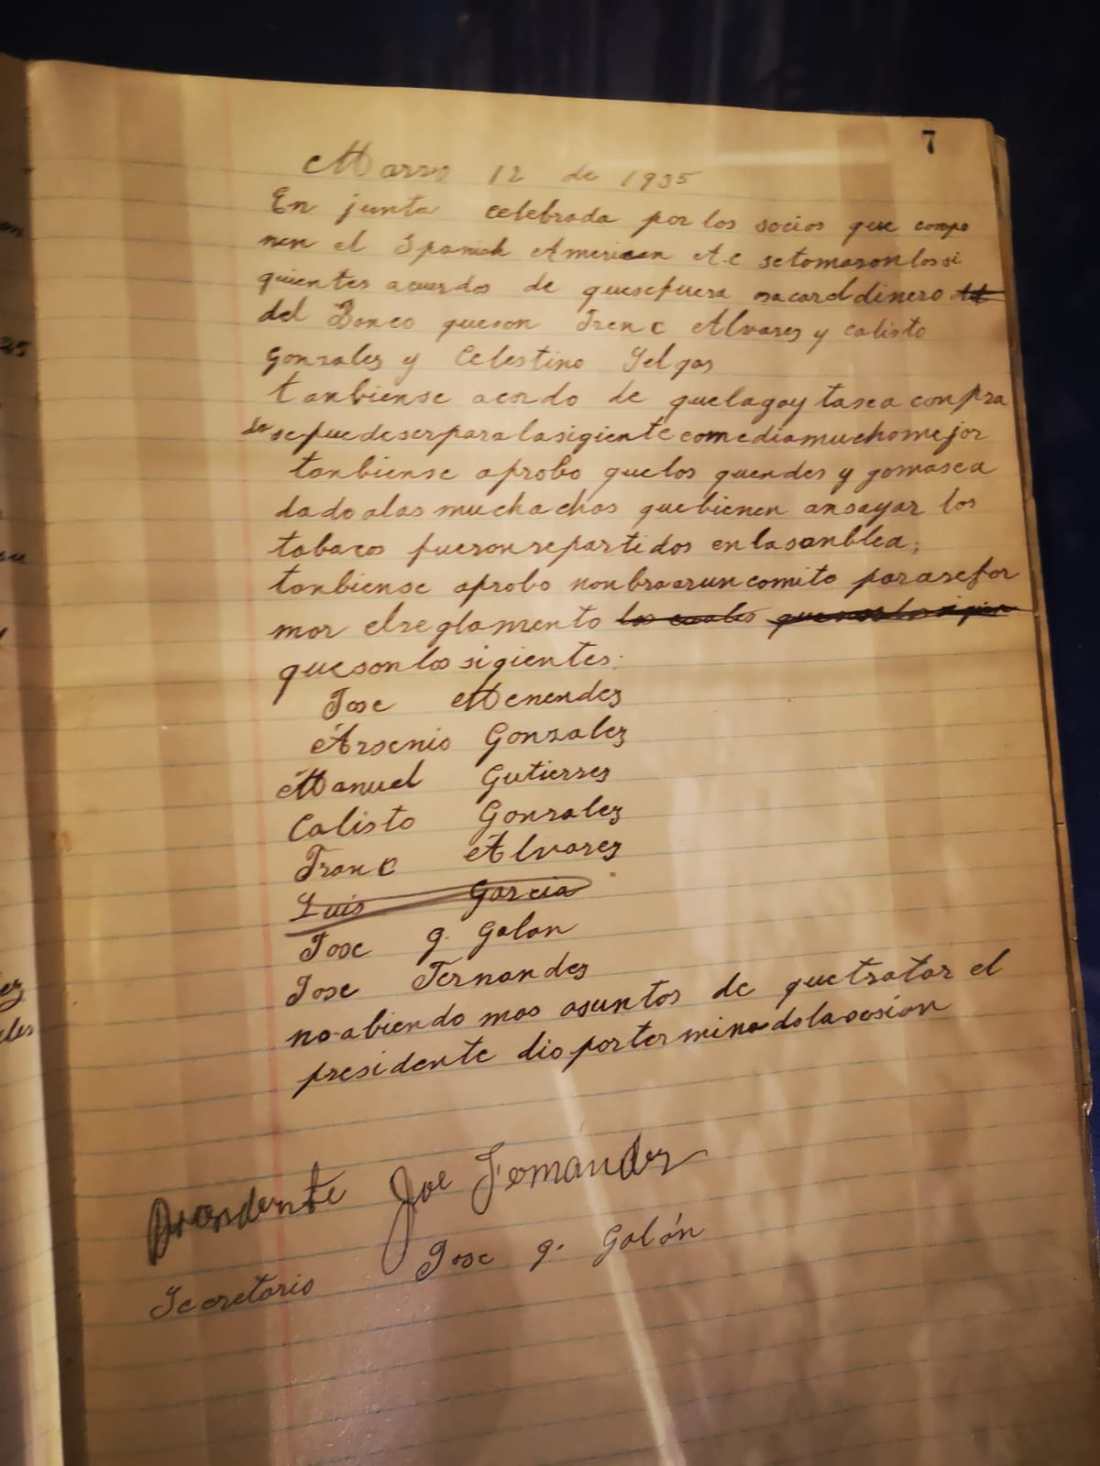 7
Marzo 12 de 1935
En junta celebrada por los socios que compo
nen el Spanish American A.C setomaron los si
guientes acuerdos de quesefuera sacareldinero
del Banco queson Franc Alvarez y Calisto
Gonzalez y Celestino Yelgas
tanbiense acordo de quelagaytasea conpra
da sepuedeserparalasigiente comediamuchomejor
tanbiense aprobo quelos quendes y gomasea
dadoalasmuchachas quebienen ansayar los
tabacos fueronrepartidos enlasanblea;
tanbiense aprobo nonbraarun comite pararefor
mar elreglamento los cuales
quesonlos sigientes:
Jose Menendez
Arsenio Gonzalez
Manuel Gutierrez
Calisto Gonzalez
Franc Alvarez
Luis Garcia
Jose g. Galan
Jose Fernandez
no abiendo mas asuntos de quetratar el
presidente dio porterminadolasesion
Joe Fernandez
Secretario Jose g. Galán